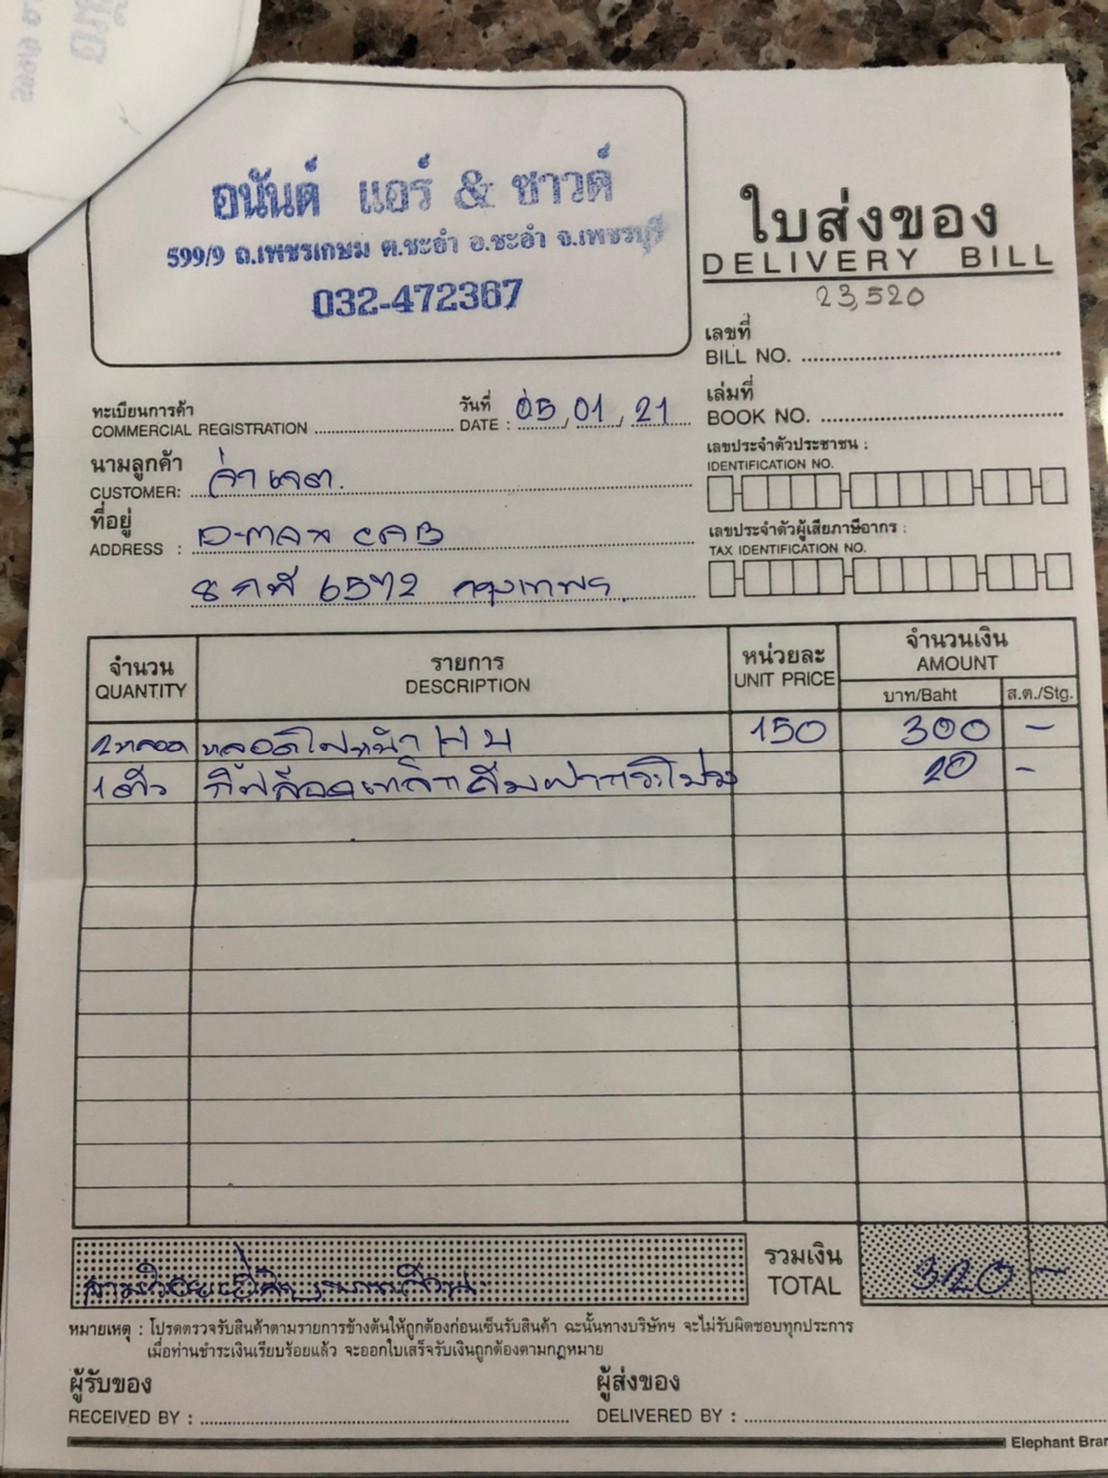 อนันต์ แอร์ & ซาวด์
599/9 ถ.เพชรเกษม ต.ชะอำ อ.ชะอำ จ.เพชรบุรี
032-472367
ใบส่งของ
DELIVERY BILL
23,520
เลขที่
BILL NO.
เล่มที่
BOOK NO.
ทะเบียนการค้า
COMMERCIAL REGISTRATION
วันที่
DATE : 05/01/21
เลขประจำตัวประชาชน :
IDENTIFICATION NO.
นามลูกค้า
CUSTOMER: จ่าเจต.
ที่อยู่
ADDRESS : D-max CAB
เลขประจำตัวผู้เสียภาษีอากร :
TAX IDENTIFICATION NO.
6572 กรุงเทพฯ
จำนวน รายการ หน่วยละ จำนวนเงิน
QUANTITY DESCRIPTION UNIT PRICE AMOUNT
บาท/Baht ส.ต./Stg.
2หลอด หลอดไฟหน้า H4 150 300 -
1 ตัว กิ๊ฟล็อคเหล็กค้ำฝากระโปรง 20 -
สามร้อยยี่สิบบาทถ้วน
รวมเงิน
TOTAL 320 -
หมายเหตุ : โปรดตรวจรับสินค้าตามรายการข้างต้นให้ถูกต้องก่อนเซ็นรับสินค้า ฉะนั้นทางบริษัทฯ จะไม่รับผิดชอบทุกประการ
เมื่อท่านชำระเงินเรียบร้อยแล้ว จะออกใบเสร็จรับเงินถูกต้องตามกฎหมาย
ผู้รับของ ผู้ส่งของ
RECEIVED BY : DELIVERED BY :
Elephant Bran